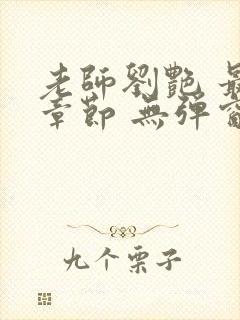 老師劉艷 最
章節 無彈窗
九个栗子